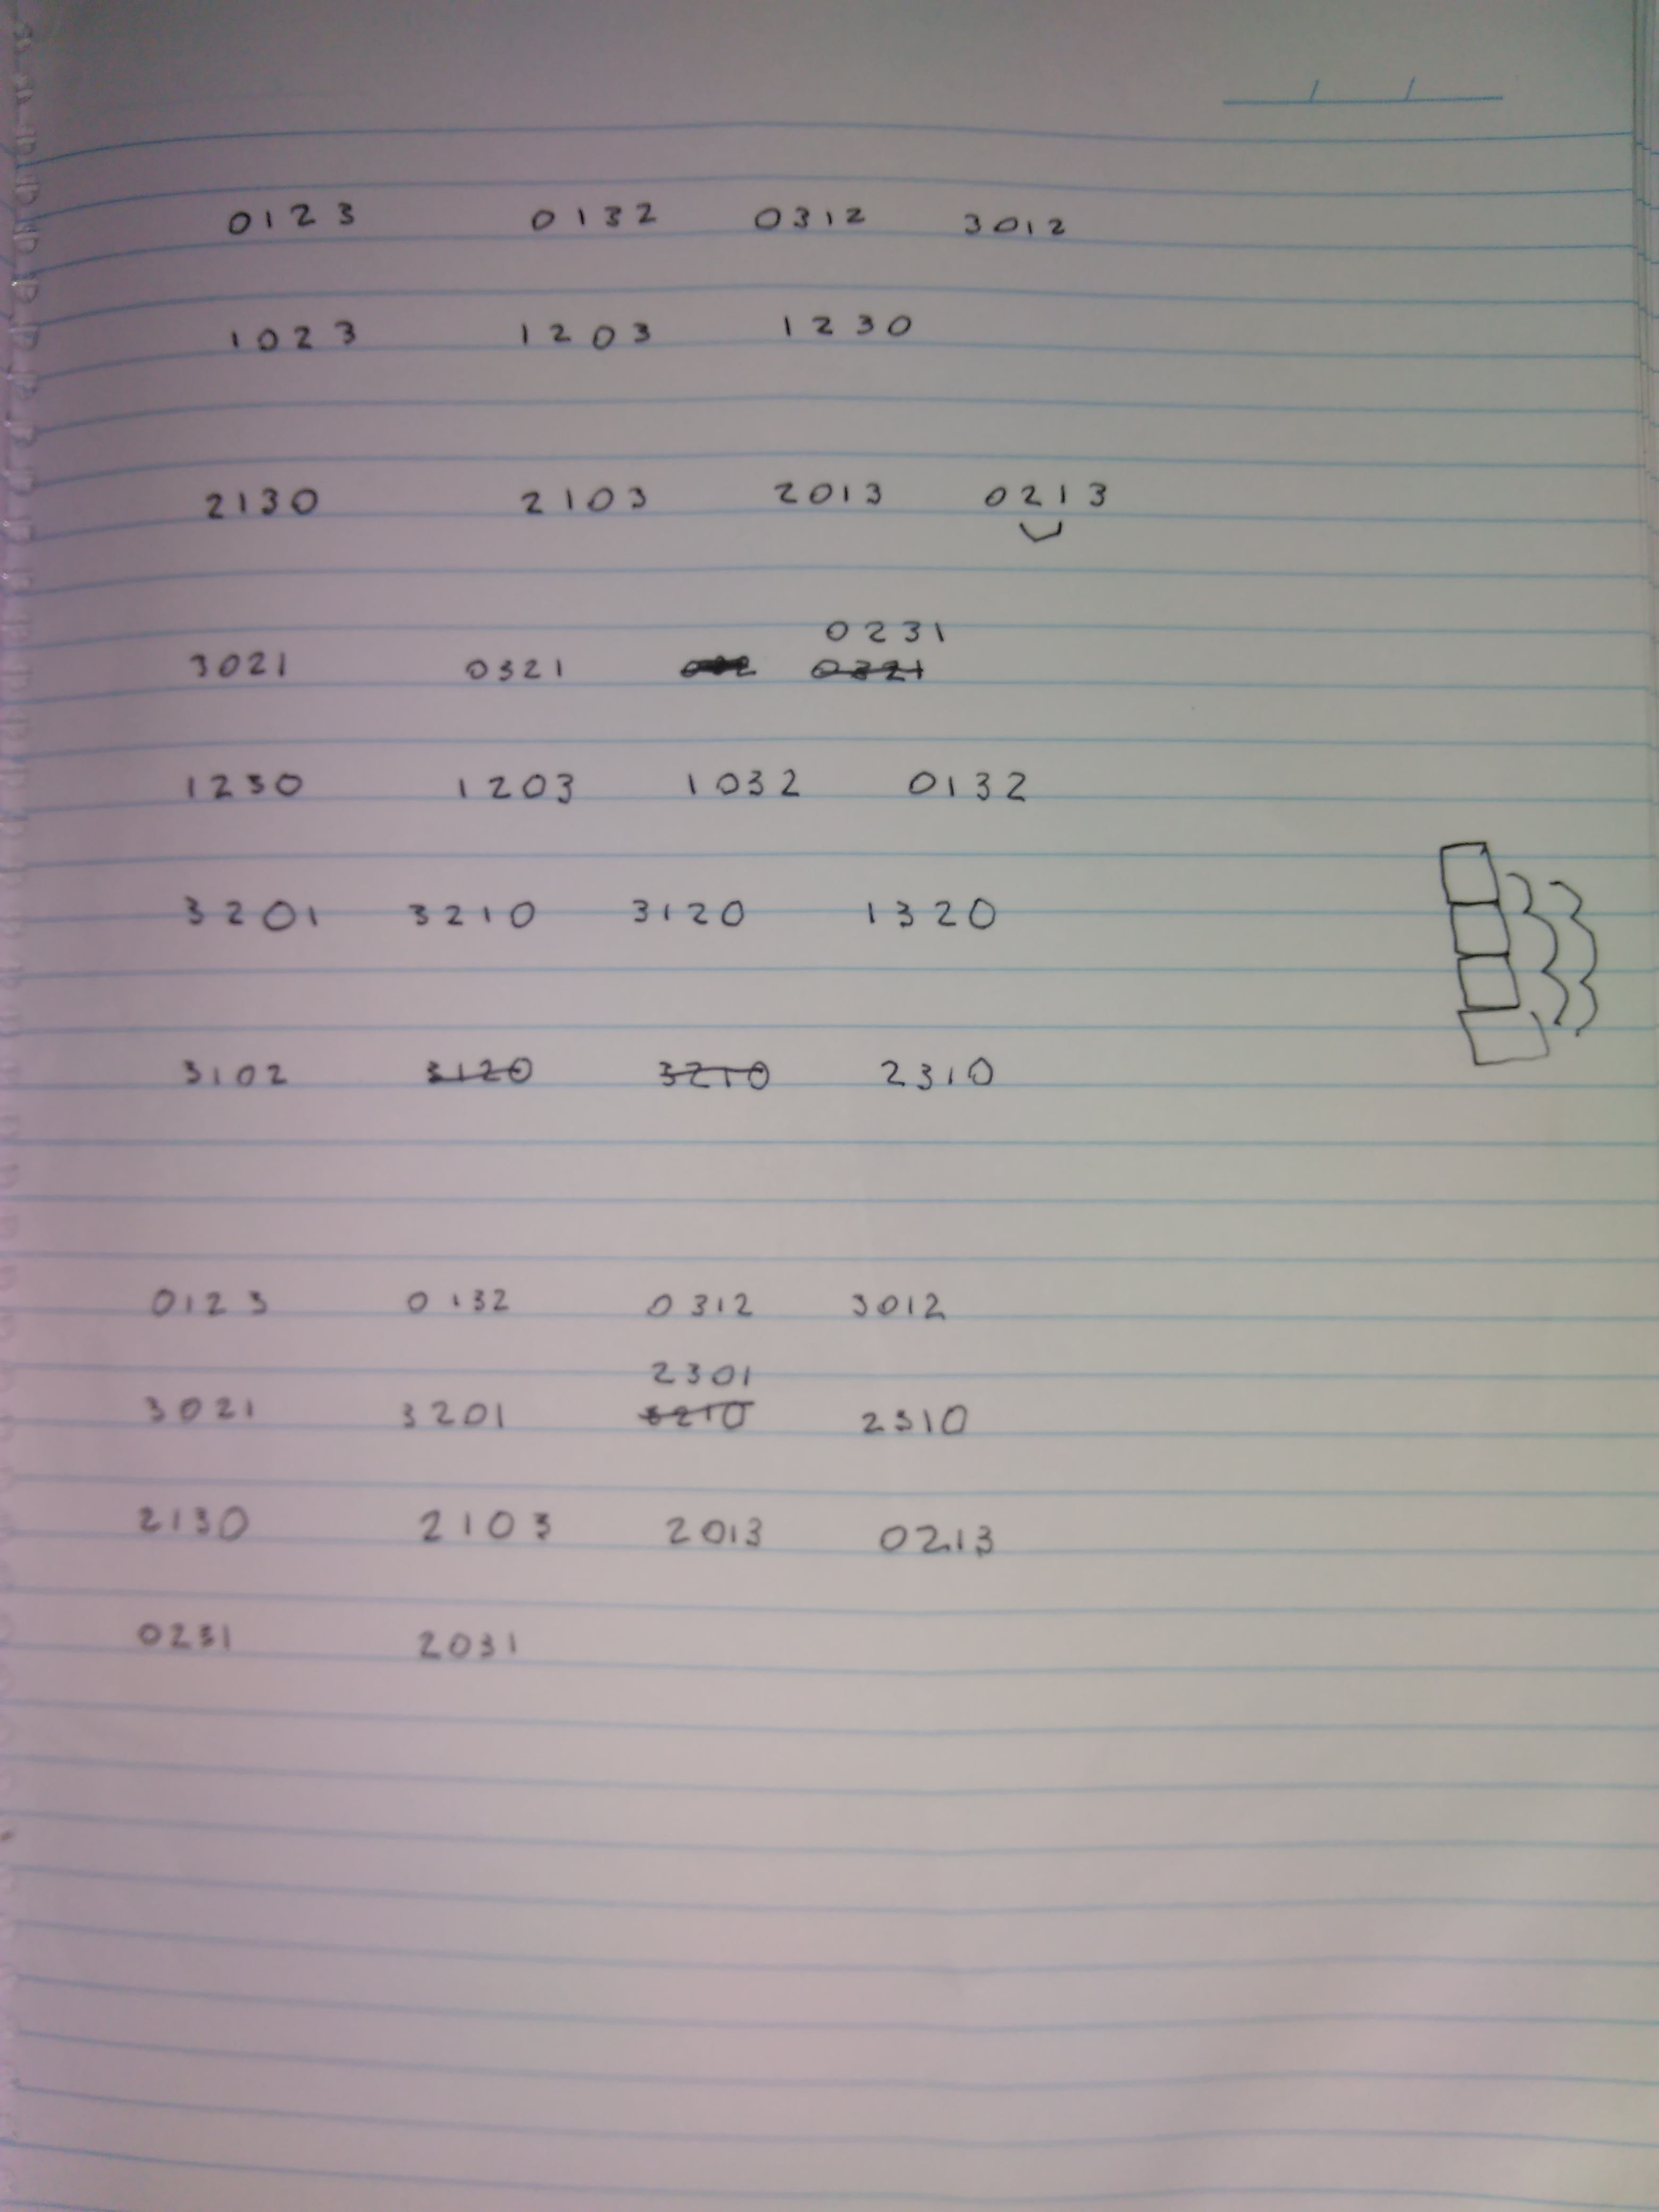 0123 0132 0312 3012
1023 1203 1230
2130 2103 2013 0213
0231
3021 0321 0321
1230 1203 1032 0132
3201 3210 3120 1320
3102 3120 3210 2310
0123 0132 0312 3012
2301
3021 3201 3210 2310
2130 2103 2013 0213
0231 2031